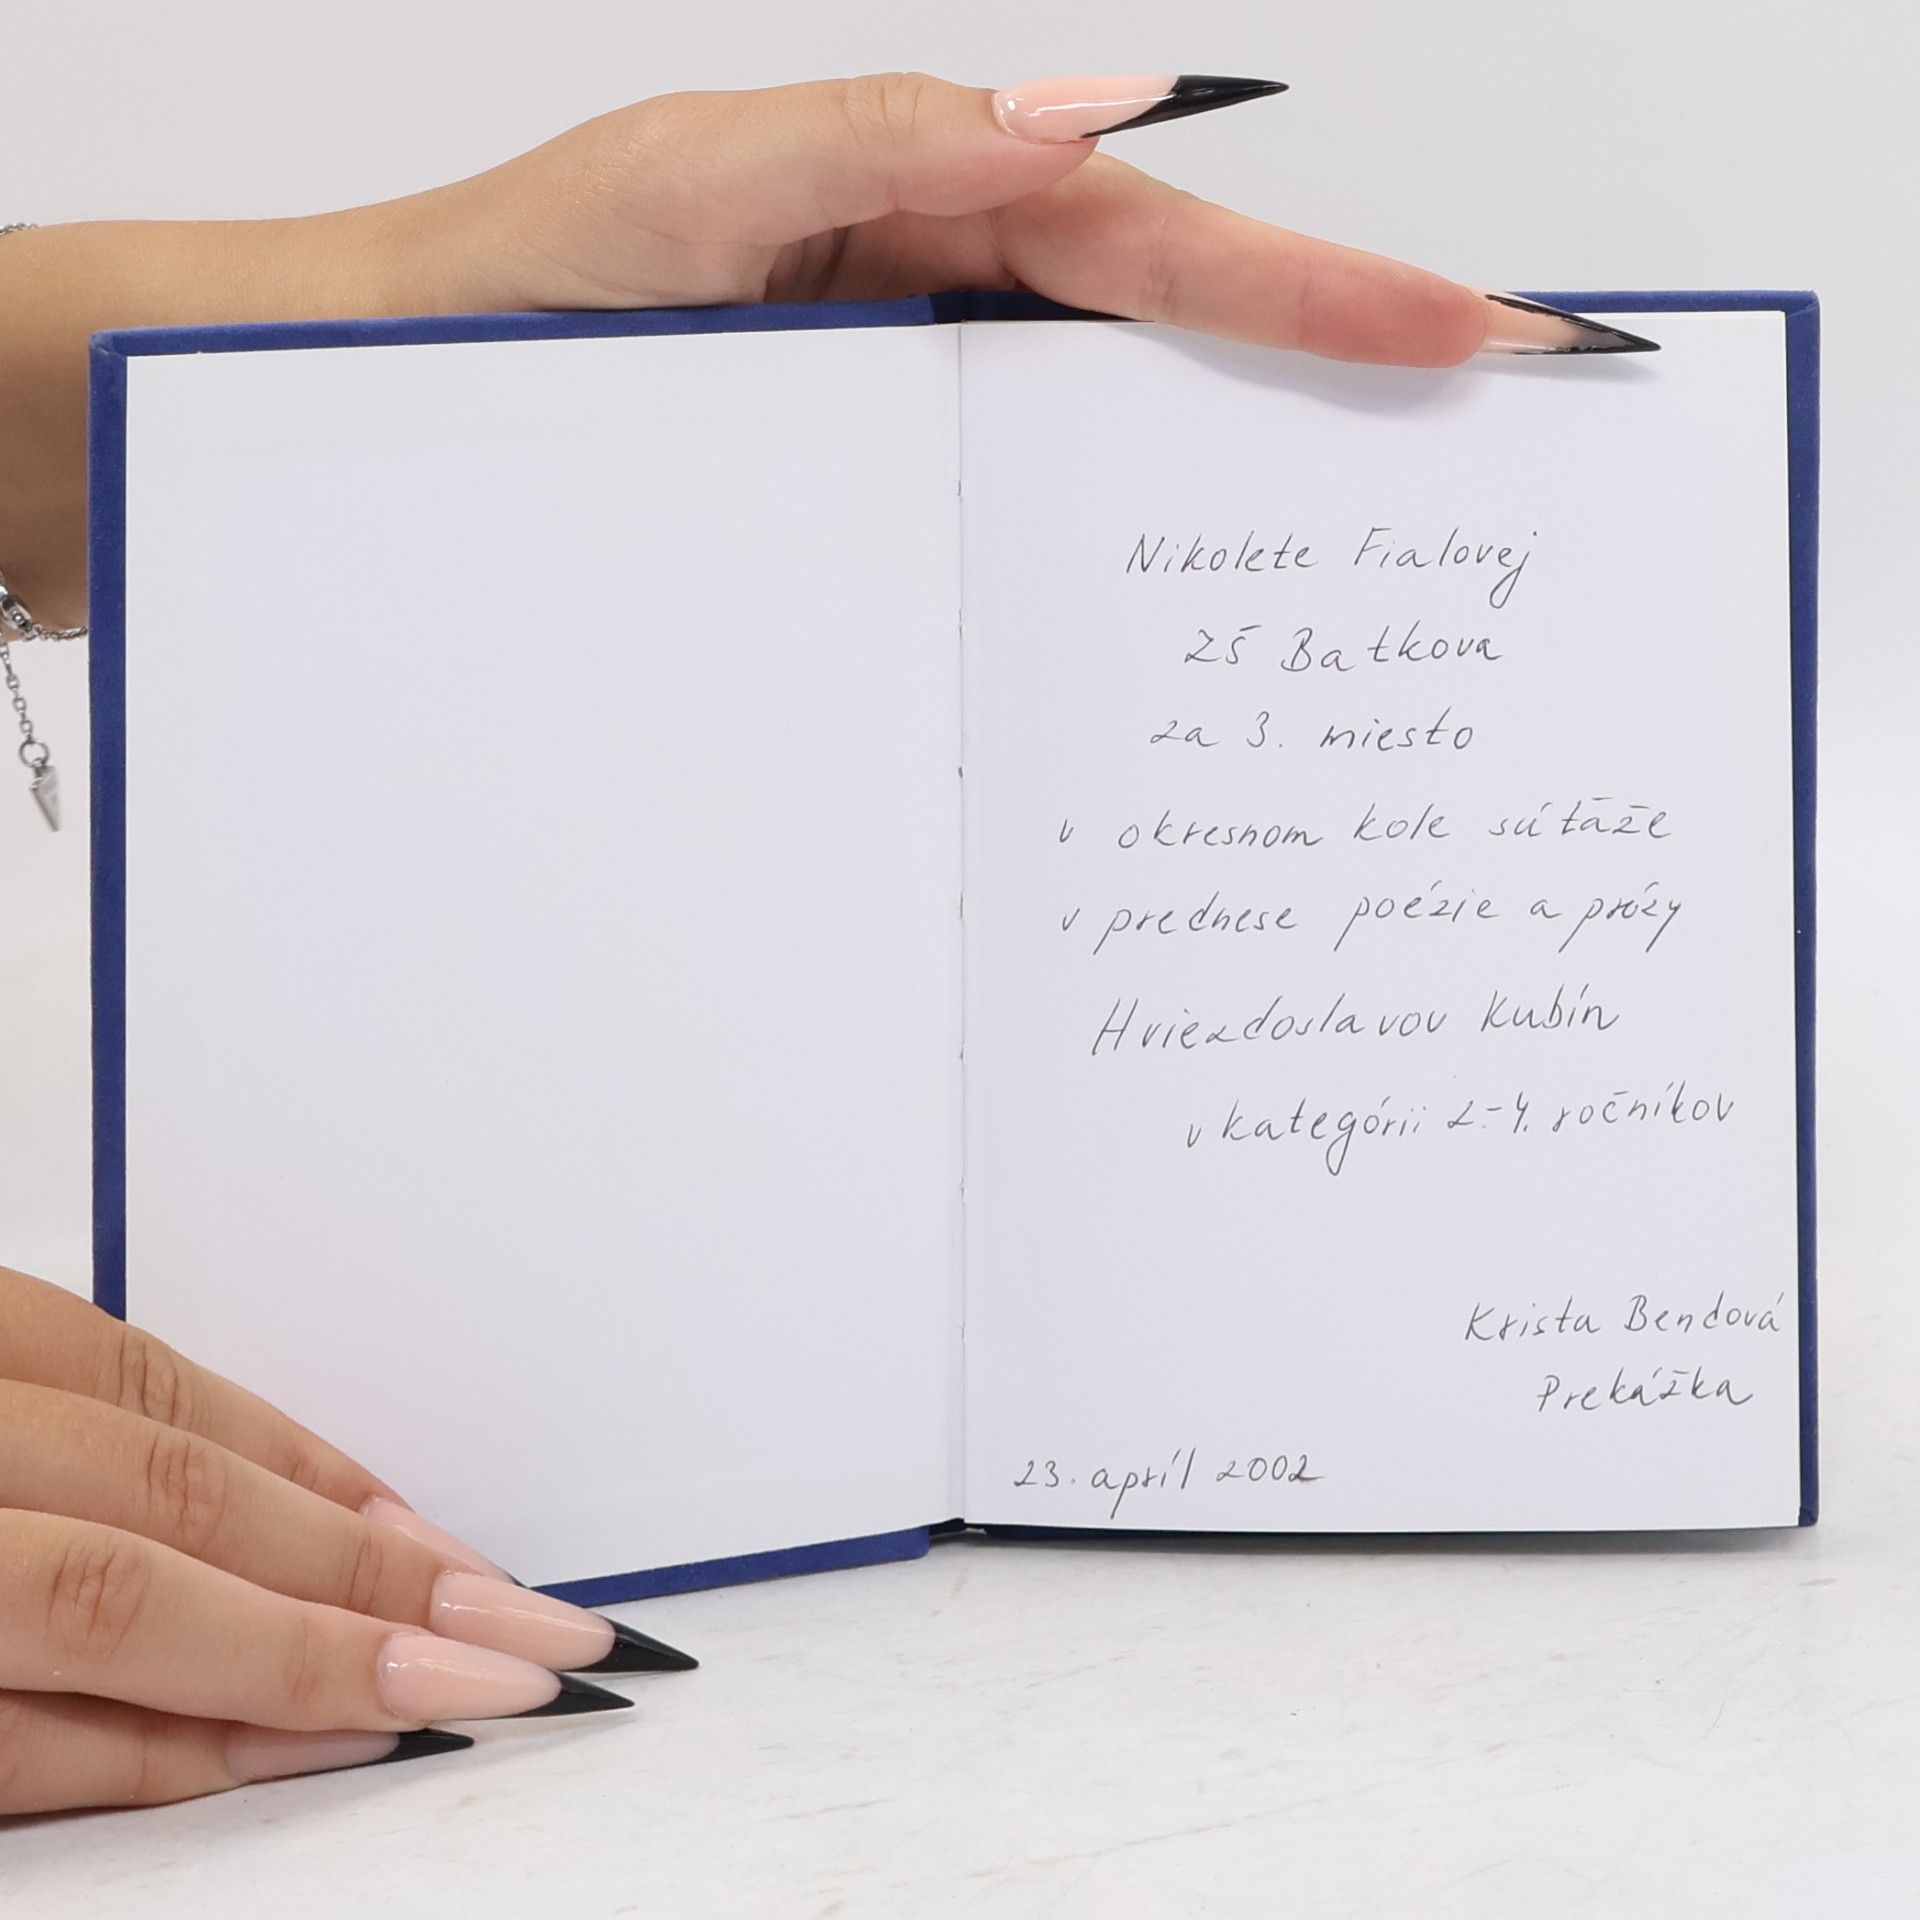 Nikolete Fialovej
ZŠ Batkova
za 3. miesto
v okresnom kole súťaže
v prednese poézie a prózy
Hviezdoslavov Kubín
v kategórii 2.-4. ročníkov
Krista Bendová
Prekážka
23. apríl 2002